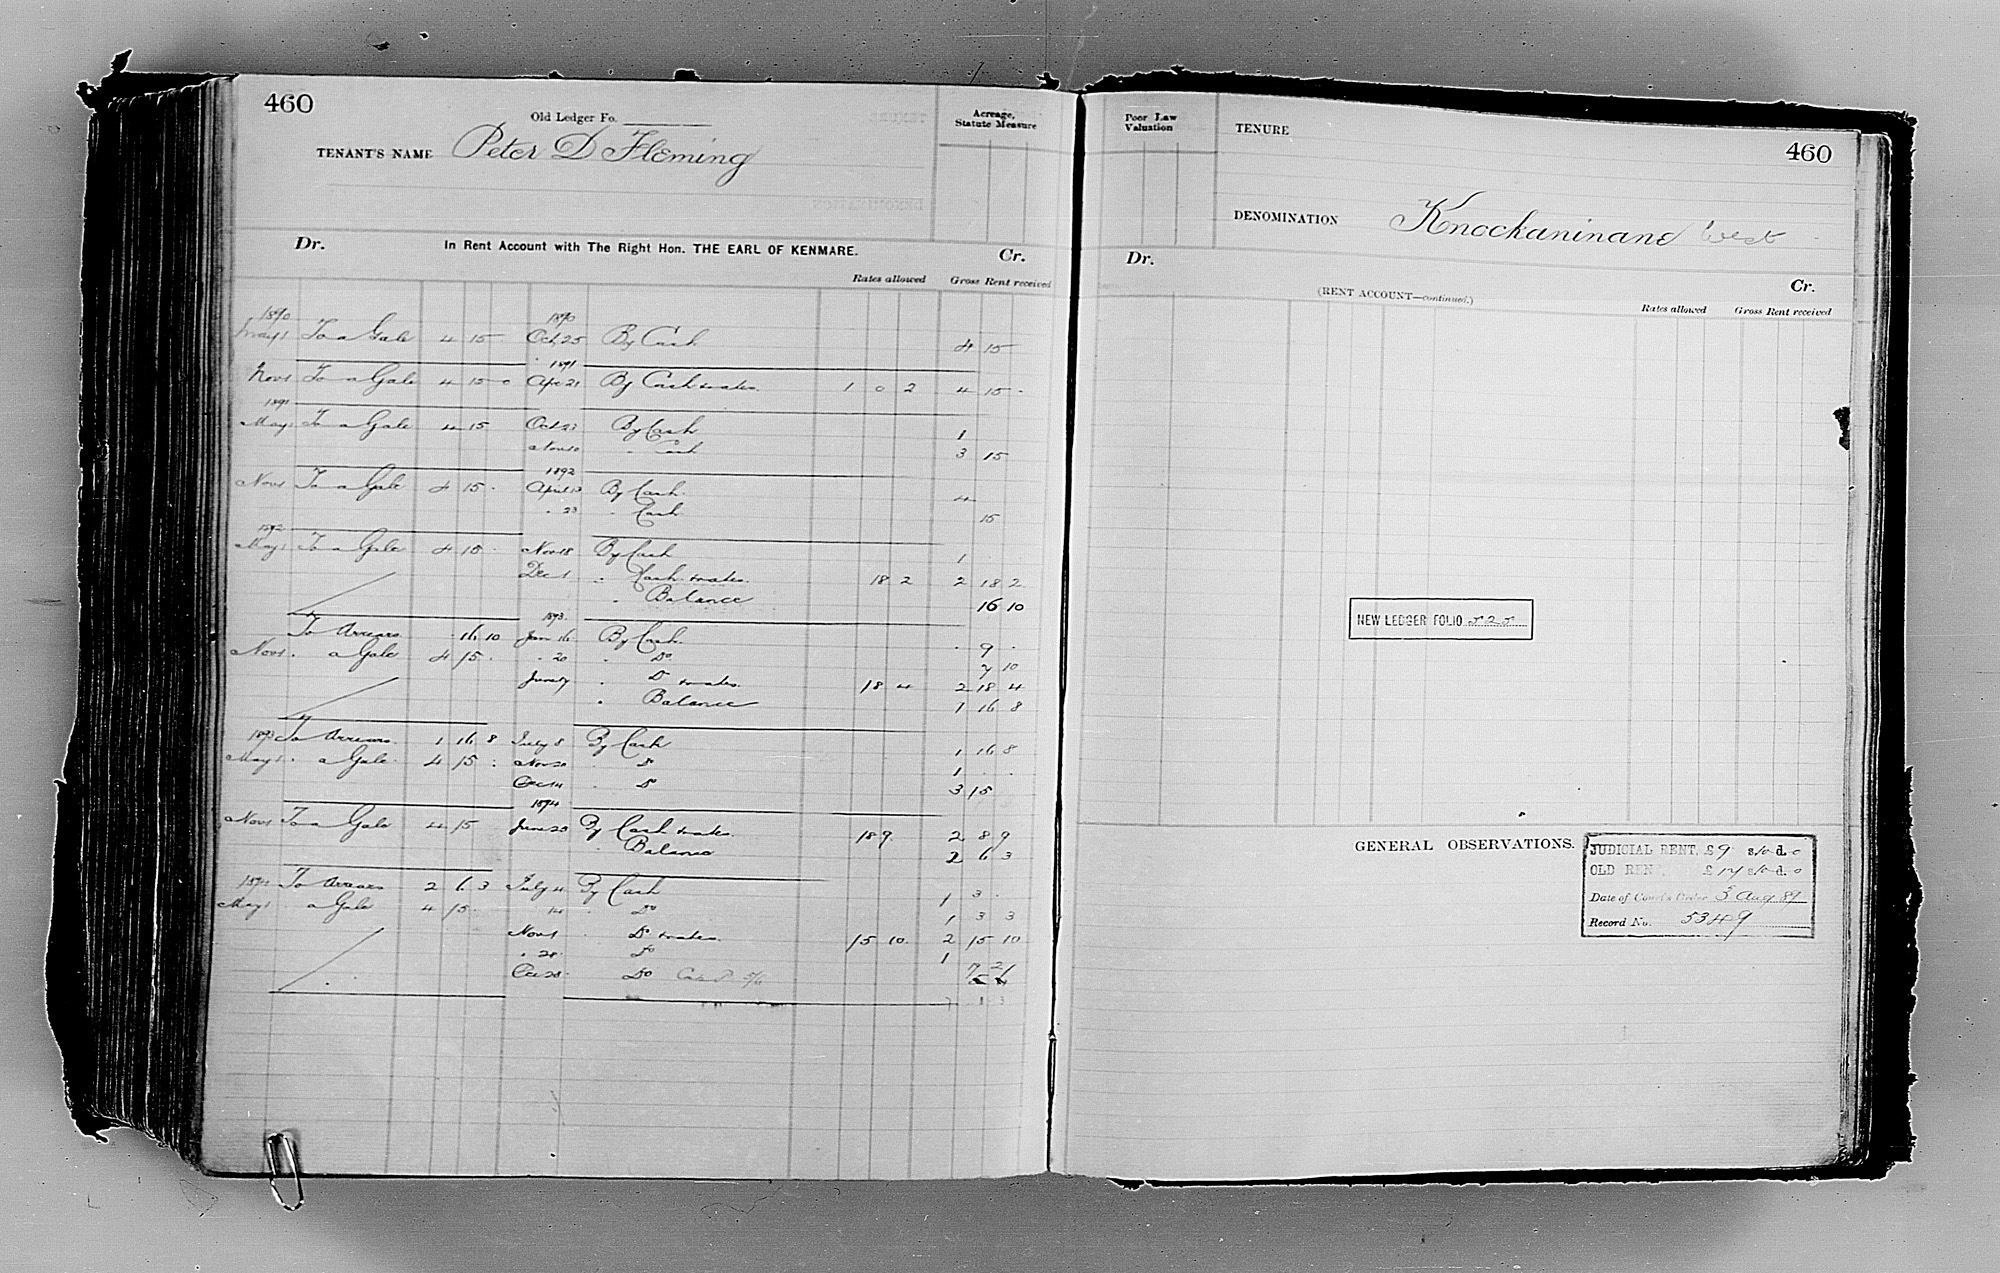 460
Old Ledger Fo.
TENANT'S NAME Peter D Fleming
Acreage, Statute Measure
Dr. In Rent Account with The Right Hon. THE EARL OF KENMARE. Cr.
Rates allowed Gross Rent received
1890 1890
May 1 To a Gale 4 15 Oct 25 By Cash 4 15
1891
Nov 1 To a Gale 4 15 0 Apr 21 By Cash & rates 1 0 2 4 15 -
1891
May 1 To a Gale 4 15 Oct 23 By Cash 1
Nov 10 " Cash 3 15
1892
Nov 1 To a Gale 4 15 - April 13 By Cash 4
" 23 " Cash 15
1892
May 1 To a Gale 4 15 - Nov 18 By Cash 1
Dec 1 " Cash & rates 18 2 2 18 2
" Balance 16 10
1893
To Arrears 16 10 Jan 16 By Cash 9
Nov 1 " a Gale 4 15 - " 20 " Do 7 10
June 7 " Do & rates 18 4 2 18 4
" Balance 1 16 8
1893 To Arrears 1 16 8 July 8 By Cash 1 16 8
May 1 " a Gale 4 15 - Nov 20 " Do 1 - -
Dec 14 " Do 3 15
1894
Nov 1 To a Gale 4 15 June 20 By Cash & rates 18 9 2 8 9
" Balance 2 6 3
1894 To Arrears 2 6 3 July 4 By Cash 1 3 -
May 1 " a Gale 4 15 - 14 " Do 1 3 3
Nov 1 Do & rates 15 10 2 15 10
" 28 Do 1
Dec 28 Do
7 1 3
Poor Law Valuation
TENURE
460
DENOMINATION Knockaninane West
Dr. Cr.
(RENT ACCOUNT—continued.)
Rates allowed Gross Rent received
NEW LEDGER FOLIO 525
GENERAL OBSERVATIONS.
JUDICIAL RENT, £9 s10 d. 0
OLD RENT, s10 d. 0
Date of Court's Order 3 Aug 89
Record No. 5349